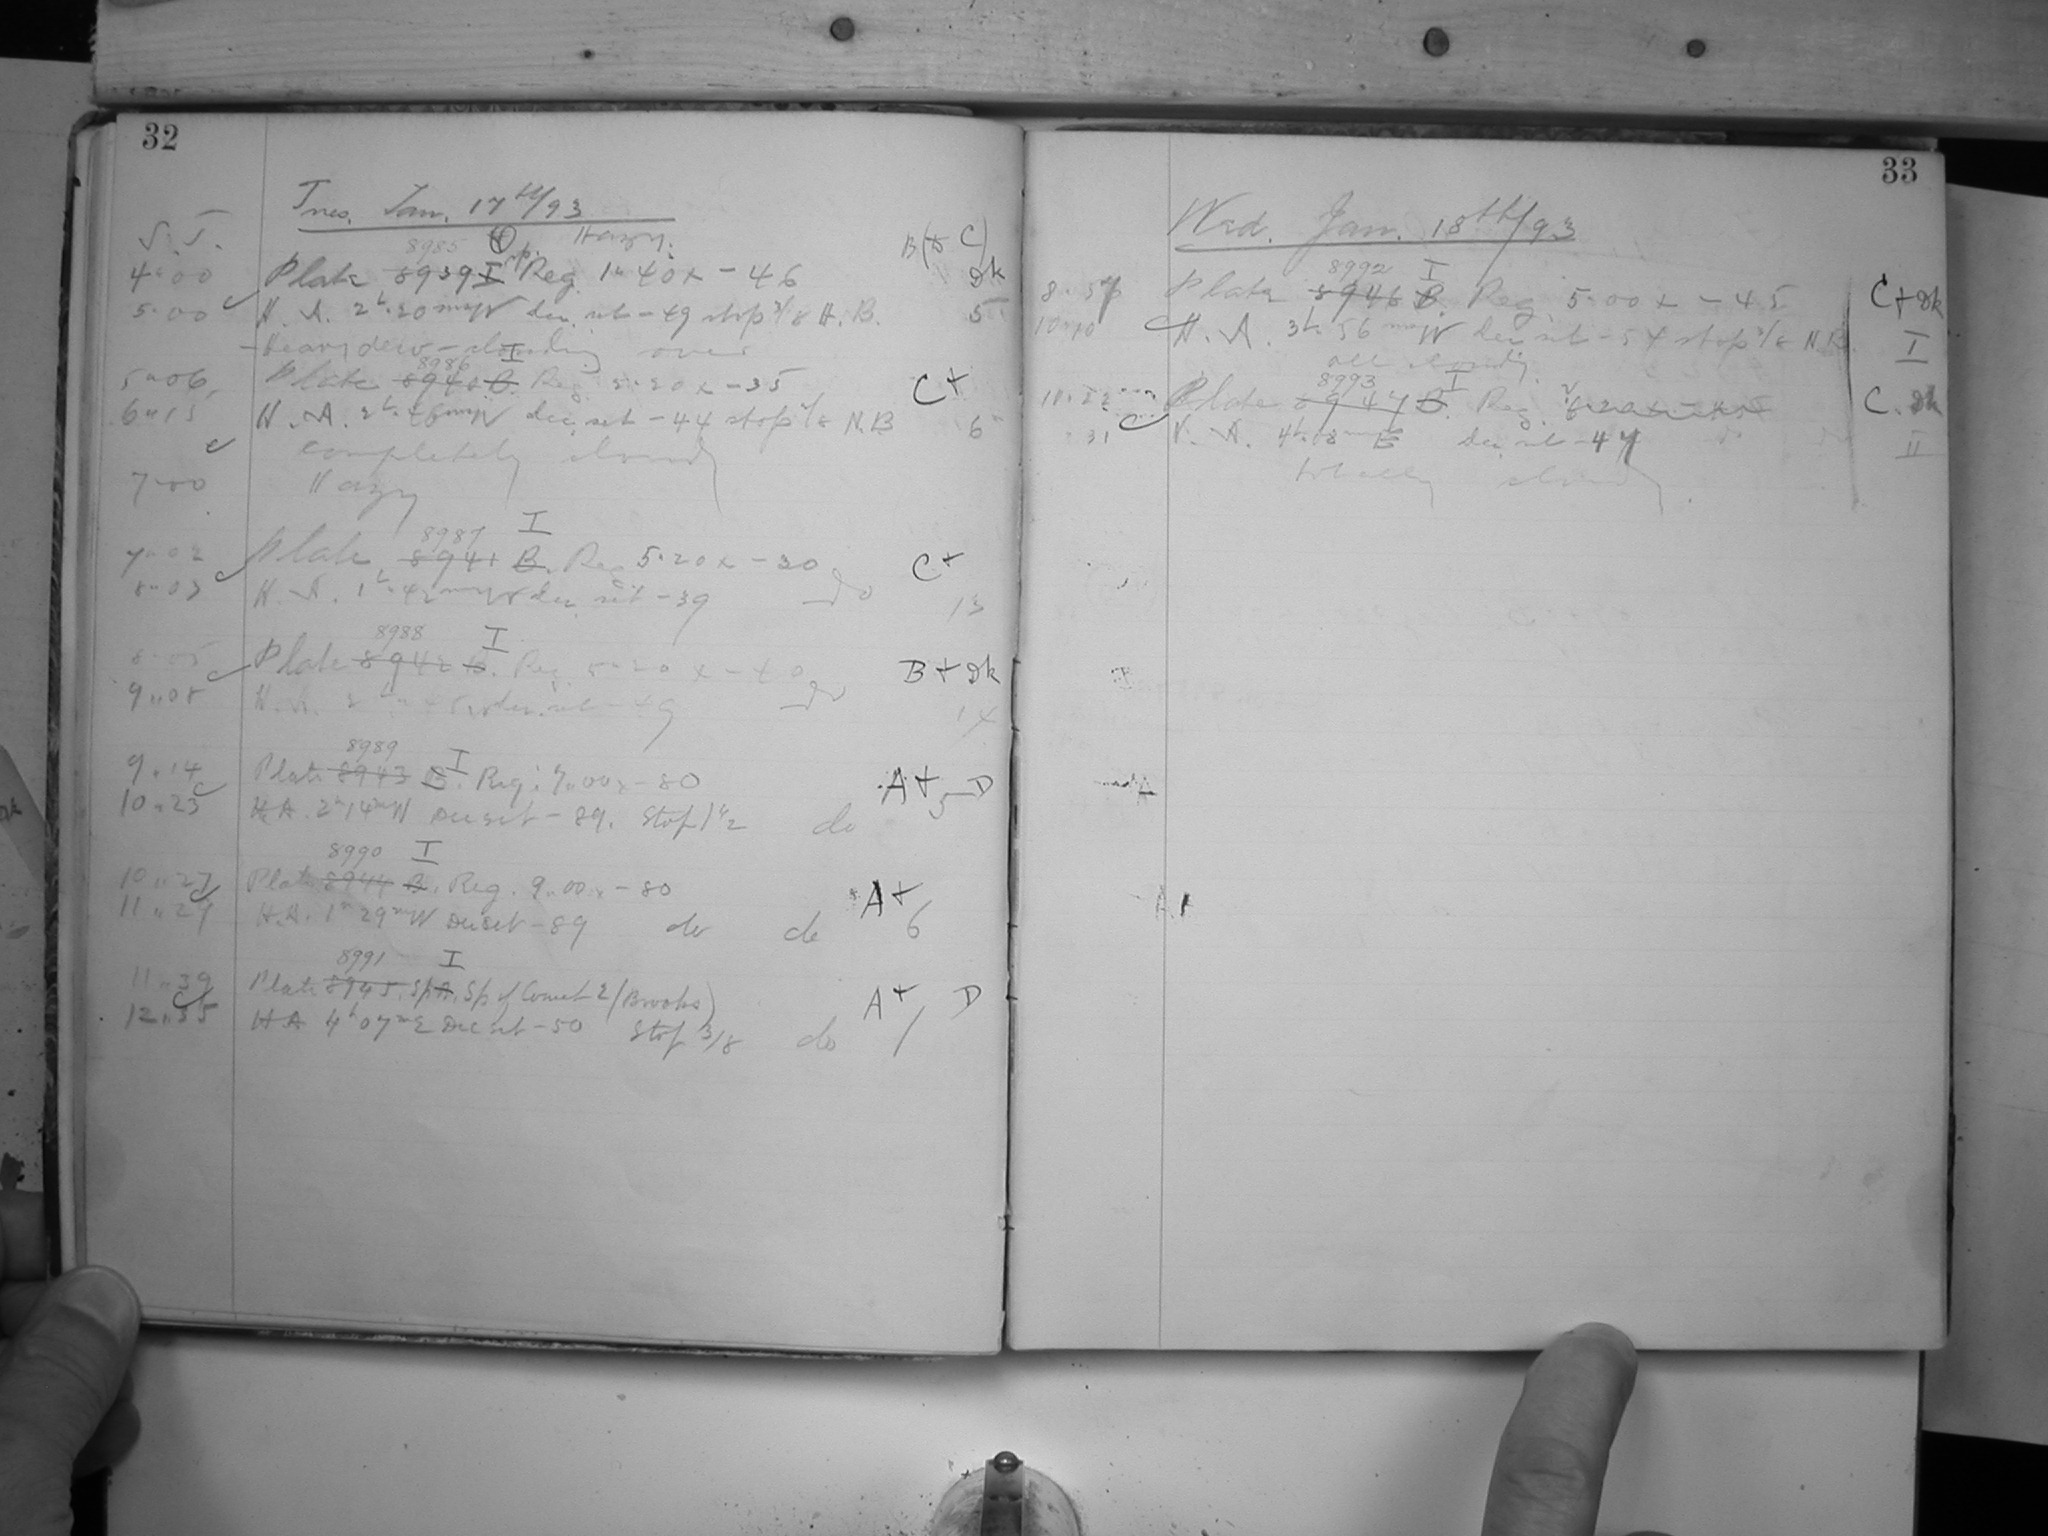 32
Tues. Jan. 17th/93
S.T.
8985 Hazy.
B(+ C)
4 00 Plate 8939 I Sp. Reg. 1 40 x - 46 dk
5 00 H. A. 2h 20m W dec. set - 49 stop 3/8 H. B. 5
heavy dew - clouding over
8986 I
5 06 Plate 8940 B. Reg. 5 20 x - 35 C+
6 15 H. A. 2h 46m W dec. set - 44 stop 3/8 N.B 6
completely cloudy
7 00 Hazy
8987 I
7 02 Plate 8941 B. Reg 5 20 x - 30 C+
8 03 H. A. 1h 42m W dec set - 39 do 13
8988 I
8 05 Plate 8942 B. Reg 5 20 x - 40 B + dk
9 08 H. A. 2h 45 W dec. set - 49 do 14
8989 I
9 14 Plate 8943 B. Reg. 7 00 x - 80 A+ D
10 23 H A. 2h 14m W Dec set - 89. Stop 1 1/2 do 5
8990 I
10 27 Plate 8944 B. Reg. 9 00 x - 80 A+
11 27 H. A. 1h 29m W Dec set - 89 do do 6
8991 I
11 39 Plate 8945. Sp A. Sp of Comet 2 (Brooks) A+ D
12 35 H A 4h 07m E Dec set - 50 Stop 3/8 do 1
33
Wed. Jan. 18th/93
8992 I
8 57 Plate 8946 B. Reg. 5 00 x - 45 C + dk
10 10 H. A. 3h 56m W dec set - 54 stop 3/8 N.B. I
all cloudy.
8993 I
11 22 Plate 8947 B. Reg. C. dk
31 H. A. 4h 08m E dec set - 47 II
totally cloudy.